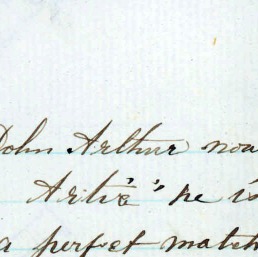 John Arthur now
Artie" he is
a perfect match